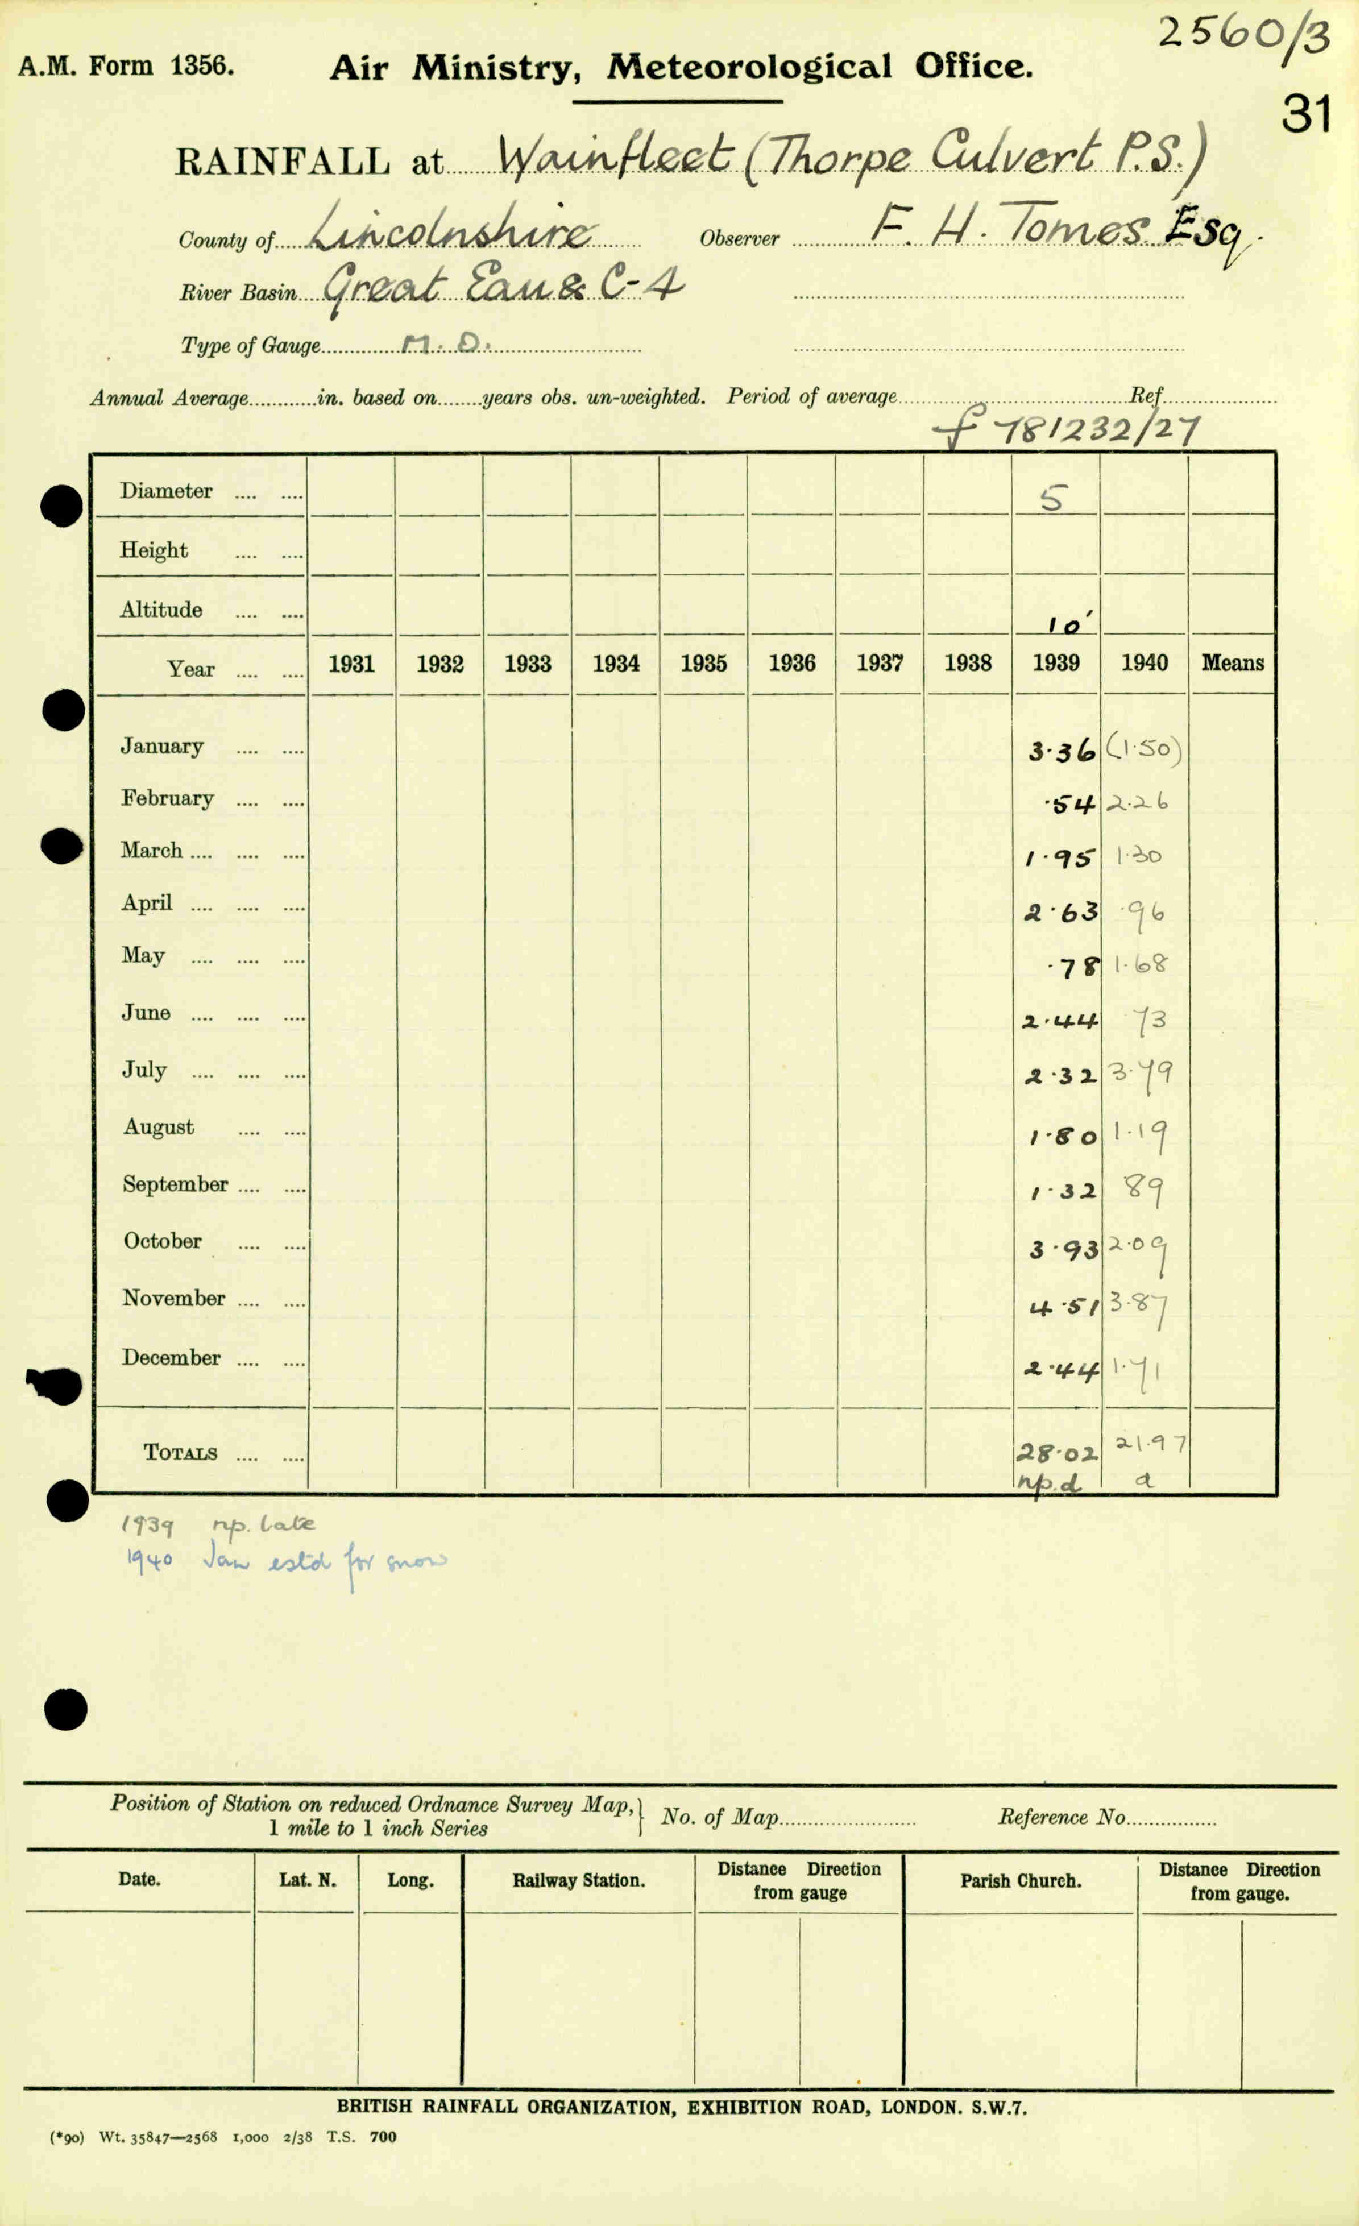 2560/3
A.M. Form 1356. Air Ministry, Meteorological Office.
31
RAINFALL at Wainfleet (Thorpe Culvert P.S.)
County of Lincolnshire Observer F. H. Tomes Esq.
River Basin Great Eau & C-4
Type of Gauge M.O.
Annual Average............in. based on........years obs. un-weighted. Period of average.................... Ref....................
f 781232/27
Diameter .... .... 5
Height .... ....
Altitude .... .... 10'
Year .... .... 1931 1932 1933 1934 1935 1936 1937 1938 1939 1940 Means
January .... .... 3.36 (1.50)
February .... .... .54 2.26
March .... .... .... 1.95 1.30
April .... .... .... 2.63 .96
May .... .... .... .78 1.68
June .... .... .... 2.44 73
July .... .... .... 2.32 3.79
August .... .... 1.80 1.19
September .... .... 1.32 89
October .... .... 3.93 2.09
November .... .... 4.51 3.87
December .... .... 2.44 1.71
TOTALS .... .... 28.02 21.97
np.d a
1939 np. late
1940 Jan estd for snow
Position of Station on reduced Ordnance Survey Map,} No. of Map........................ Reference No.................
1 mile to 1 inch Series
Date. Lat. N. Long. Railway Station. Distance Direction from gauge Parish Church. Distance Direction from gauge.
BRITISH RAINFALL ORGANIZATION, EXHIBITION ROAD, LONDON. S.W.7.
(*90) Wt. 35847—2568 1,000 2/38 T.S. 700